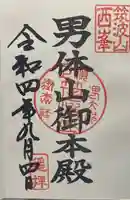 筑波山
西峯
男体山御本殿
令和四年九月四日